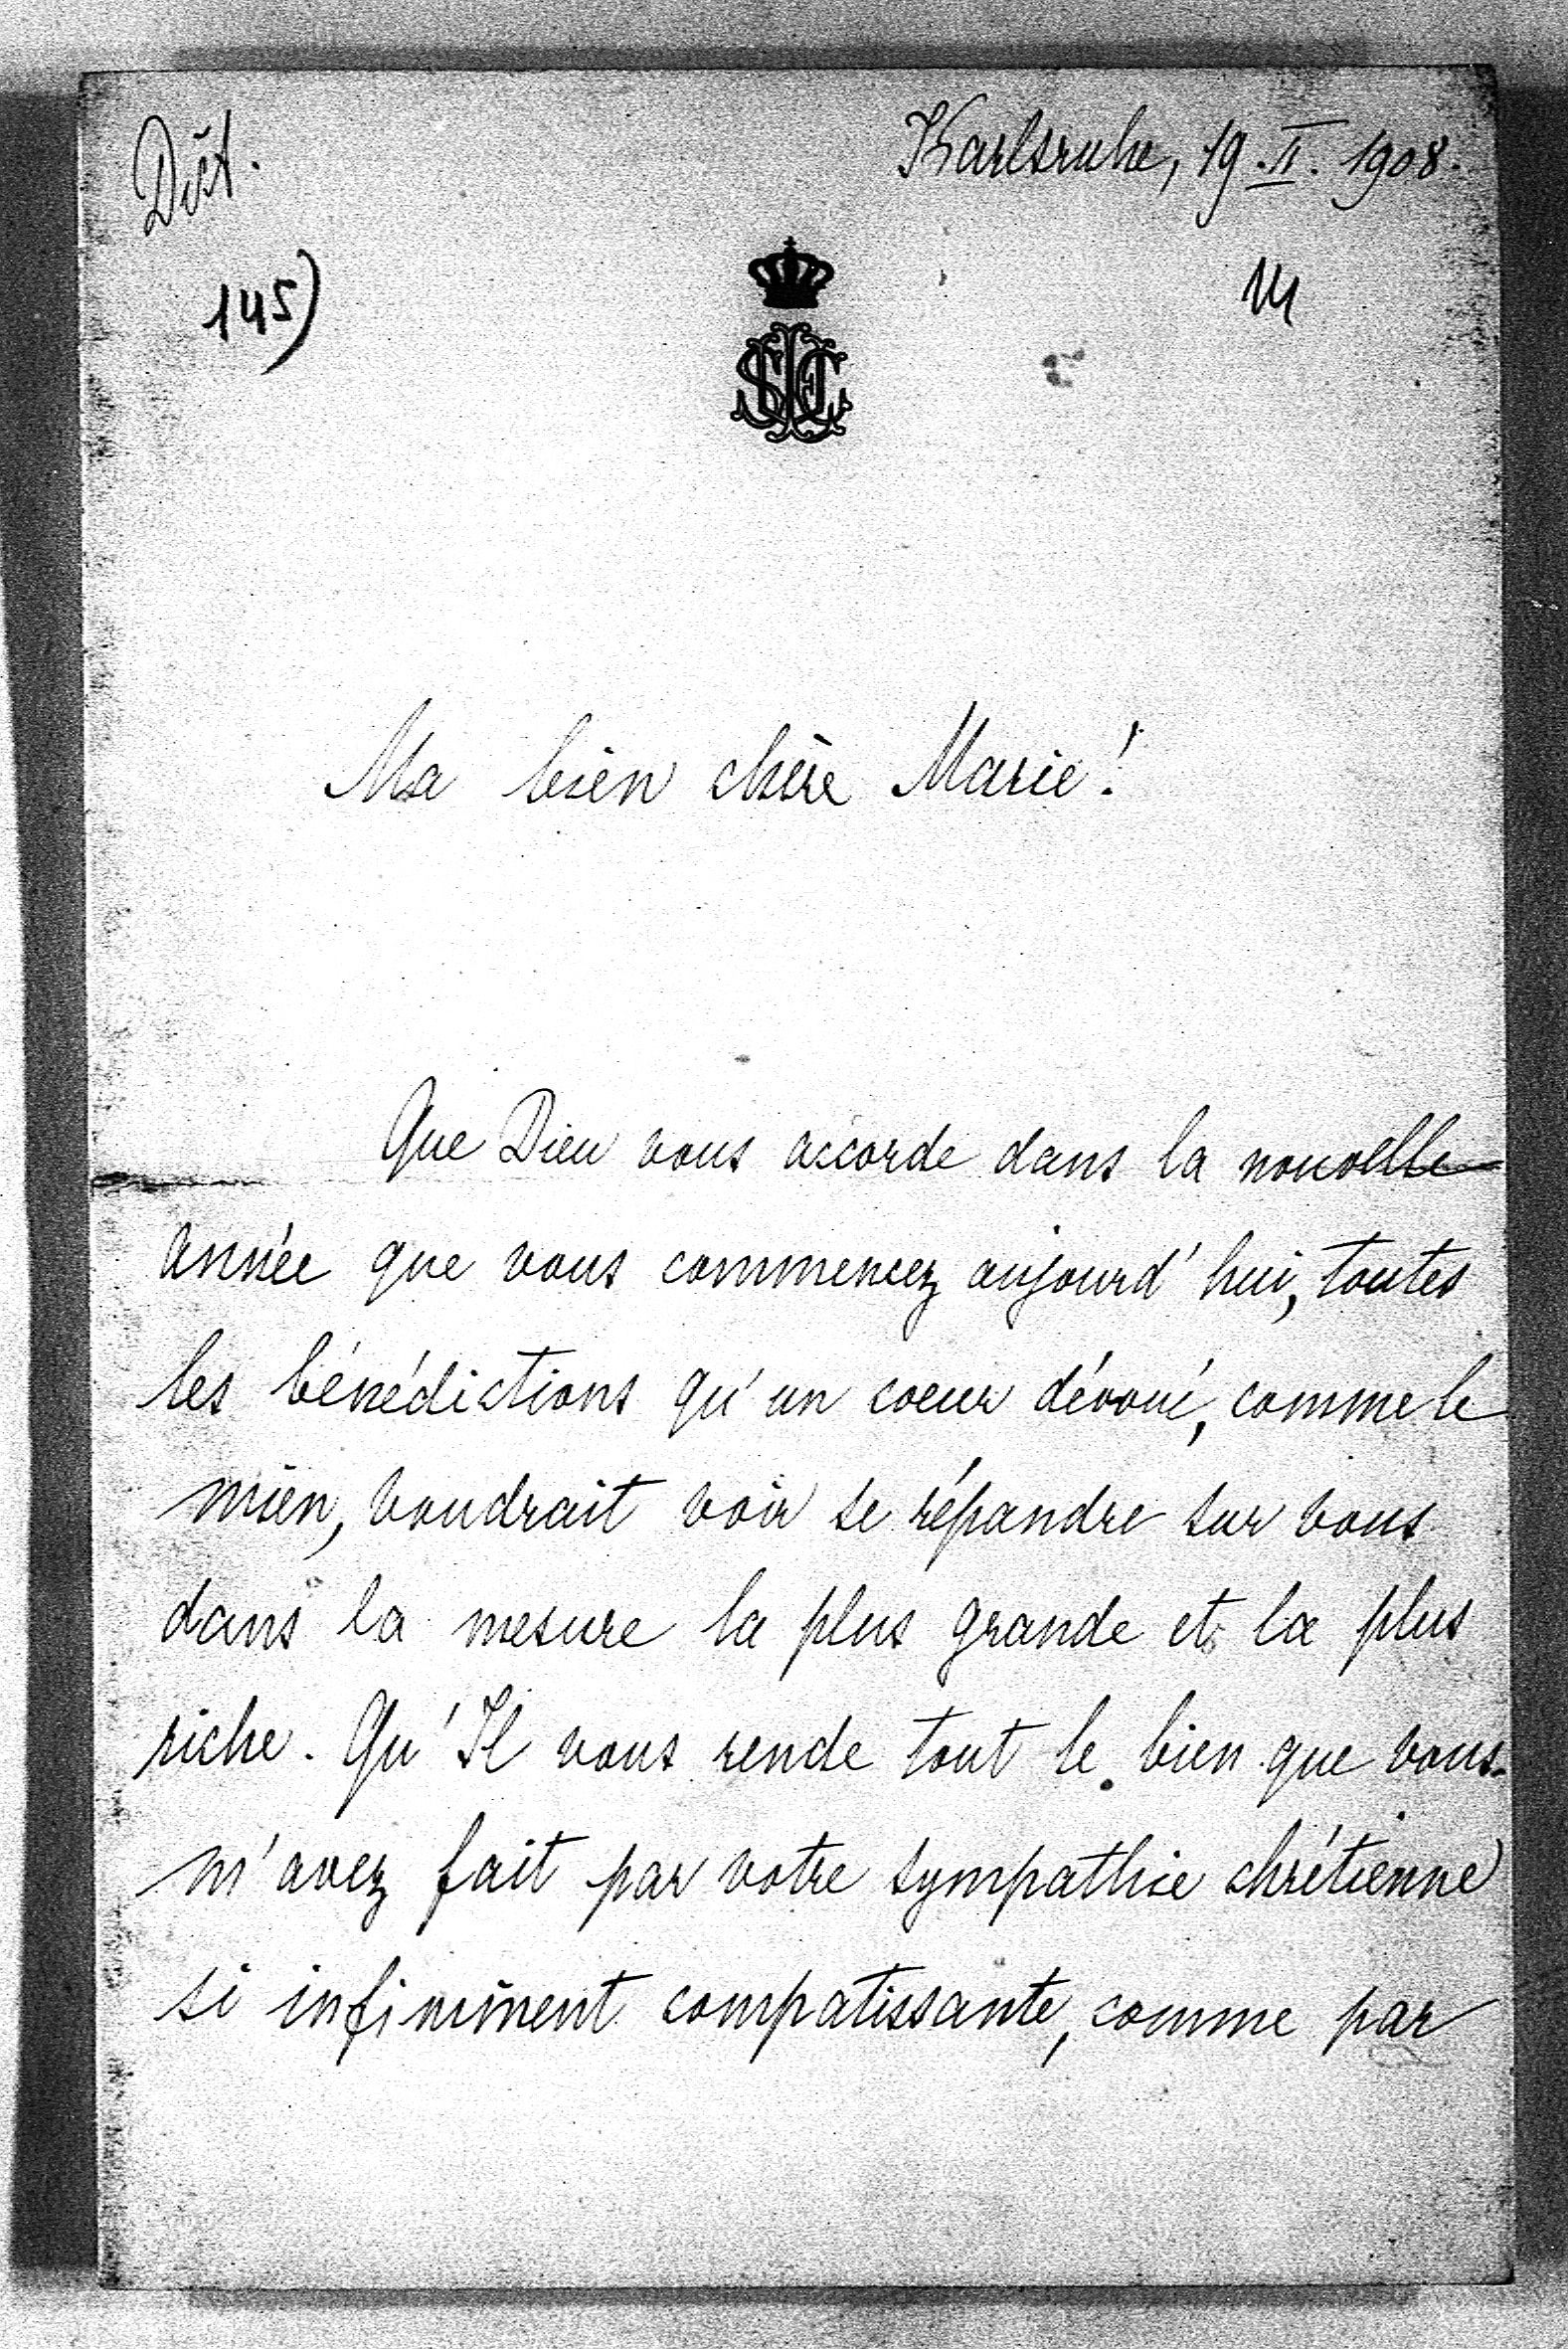 Dict.
Karlsruhe, 19. II. 1908.
145)
Ma bien chère Marie!
Que Dieu vous accorde dans la nouvelle
année que vous commencez aujourd'hui, toutes
les bénédictions qu'un coeur dévoué, comme le
mien, voudrait voir se répandre sur vous
dans la mesure la plus grande et la plus
riche. Qu'Il vous rende tout le bien que vous
m'avez fait par votre sympathie chrétienne
si infiniment compatissante, comme par